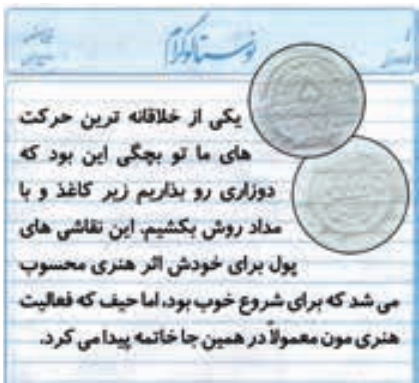 نوستاگرام
یکی از خلاقانه ترین حرکت
های ما تو بچگی این بود که
دوزاری رو بذاریم زیر کاغذ و با
مداد روش بکشیم. این نقاشی های
پول برای خودش اثر هنری محسوب
می شد که برای شروع خوب بود، اما حیف که فعالیت
هنری مون معمولاً در همین جا خاتمه پیدا می کرد.